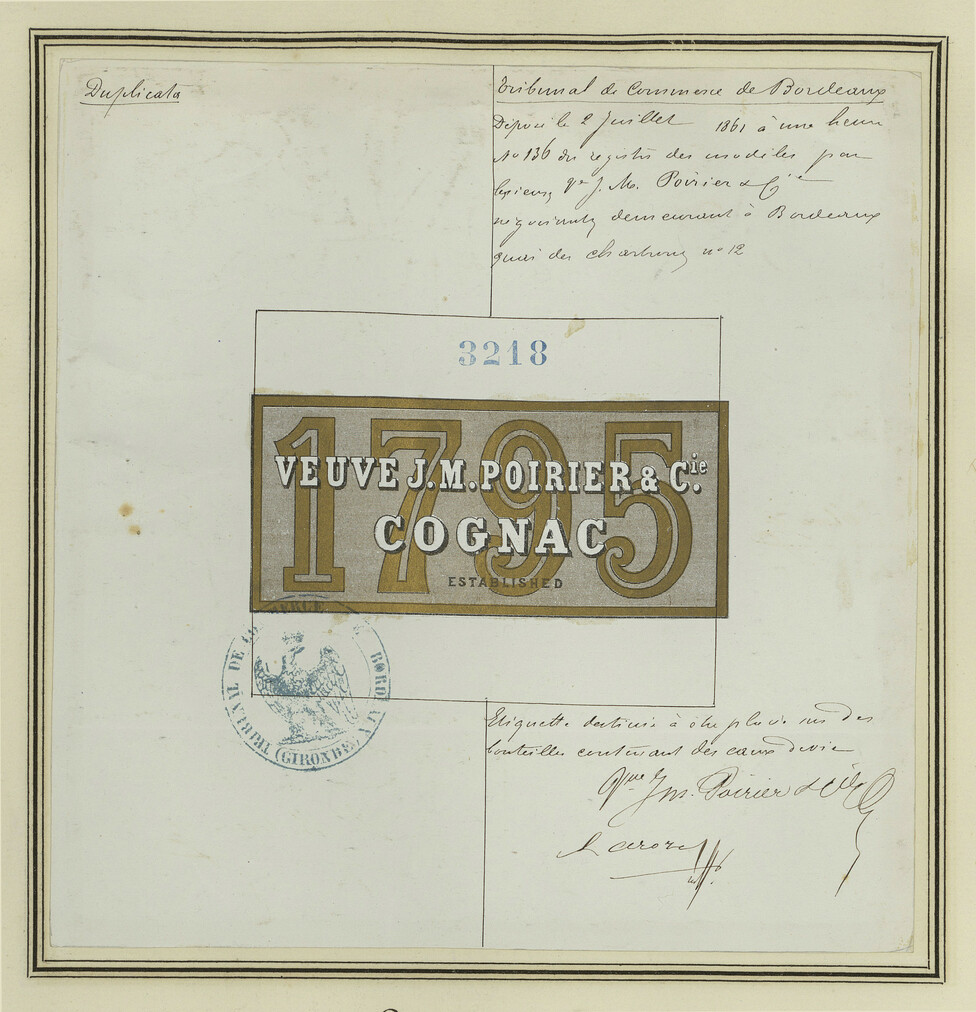 Duplicata
Tribunal de Commerce de Bordeaux
Déposé le 2 Juillet 1861 à une heure
No 136 du registre des modèles par
les sieurs Vve J. M. Poirier & Cie
négociants demeurant à Bordeaux
quai des Chartrons no 12
3218
1795
VEUVE J.M. POIRIER & Cie.
COGNAC
ESTABLISHED
TRIBUNAL DE COMMERCE DE BORDEAUX
(GIRONDE)
Etiquette destinée à être placée sur des
bouteilles contenant des eaux de vie
Vve J m. Poirier & Cie